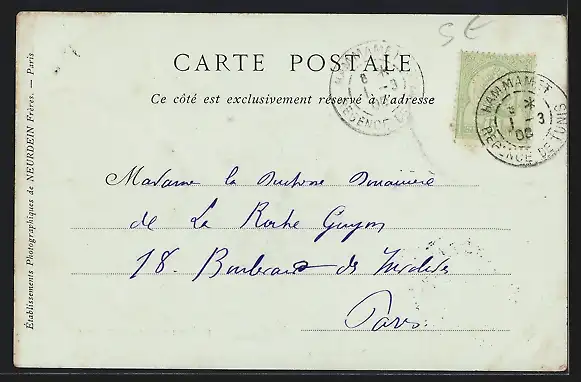 SE
CARTE POSTALE
Ce côté est exclusivement réservé à l'adresse
HAMMAMET
8
1 - 3
REGENCE DE
HAMMAMET
8 *
1 - 3
REGENCE DE TUNIS
Madame la Duchesse Douairière
de La Roche Guyon
18. Boulevard des Invalides
Paris.
Établissements Photographiques de NEURDEIN Frères. — Paris